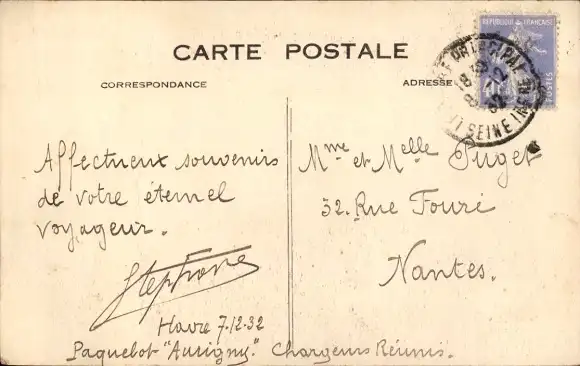 CARTE POSTALE
CORRESPONDANCE
ADRESSE
REPUBLIQUE FRANÇAISE
POSTES
SEINE INFRE
Affectueux souvenirs
de votre éternel
voyageur.
Havre 7.12.32
Paquebot "Aurigny". Chargeurs Réunis.
Mme et Melle Puget
32. Rue Fouré
Nantes.